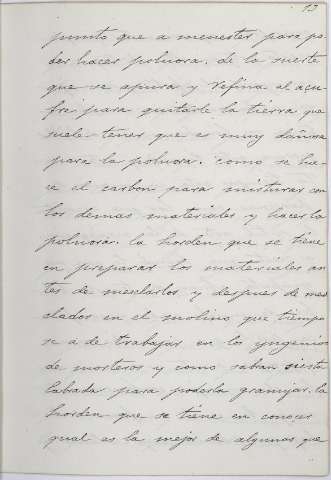 13
punto que a menester para po
der hacer polvora. de la suerte
que se apura y refina al acu
fre para quitarle la tierra que
suele tener que es muy dañosa
para la polvora. como se ha
ra el carbon para misturar con
los demas materiales y hacer la
polvora. la horden que se tiene
en preparar los materiales an
tes de mezclarlos y despues de mez
clados en el molino que tiempo
se a de trabajar en los yngenios
de morteros y como sabran si esta
labrada para poderla granujar. la
horden que se tiene en conocer
qual es la mejor de algunas que